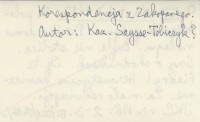 Korespondencja z Zakopanego.
Autor: Kaz. Saysse-Tobiczyk?